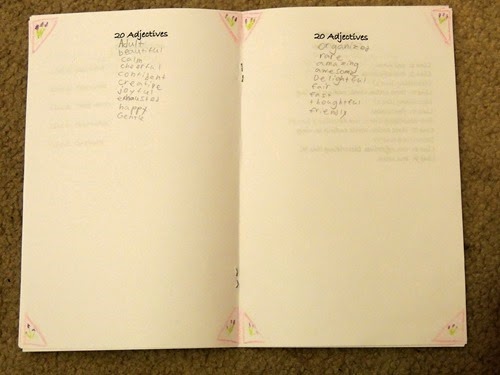 20 Adjectives
Adult
beautiful
calm
cheerful
confident
creative
joyful
exhausted
happy
Gentle
20 Adjectives
organized
rare
amazing
awesome
Delightful
fair
fast
thoughtful
friendly